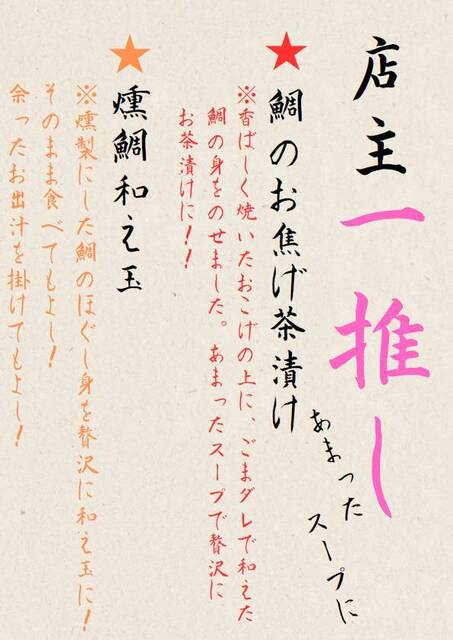 店主一推し
あまった
スープに
★鯛のお焦げ茶漬け
※香ばしく焼いたおこげの上に、ごまダレで和えた
鯛の身をのせました。あまったスープで贅沢に
お茶漬けに！！
★燻鯛和え玉
※燻製にした鯛のほぐし身を贅沢に和え玉に！
そのまま食べてもよし！
余ったお出汁を掛けてもよし！